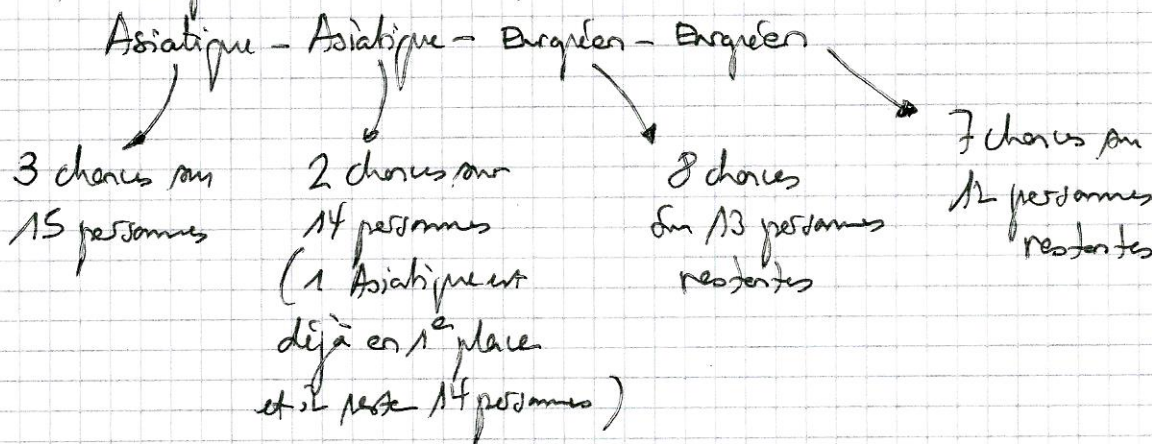 Asiatique - Asiatique - Européen - Européen
3 chances sur
15 personnes
2 chances sur
14 personnes
(1 Asiatique est
déjà en 1e place
et il reste 14 personnes)
8 chances
sur 13 personnes
restantes
7 chances sur
12 personnes
restantes